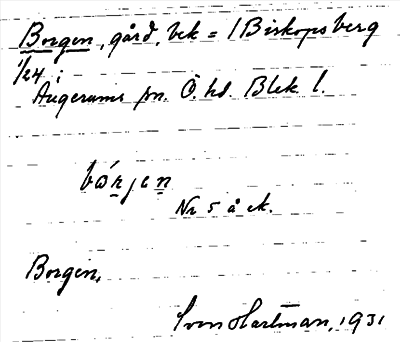 Borgen, gård, bek = 1 Biskopsberg
1/24 i
Augerums sn. Ö. hd. Blek l.
bɷ́rjen
Nr 5 å ek.
Borgen,
Sven Hartman, 1931